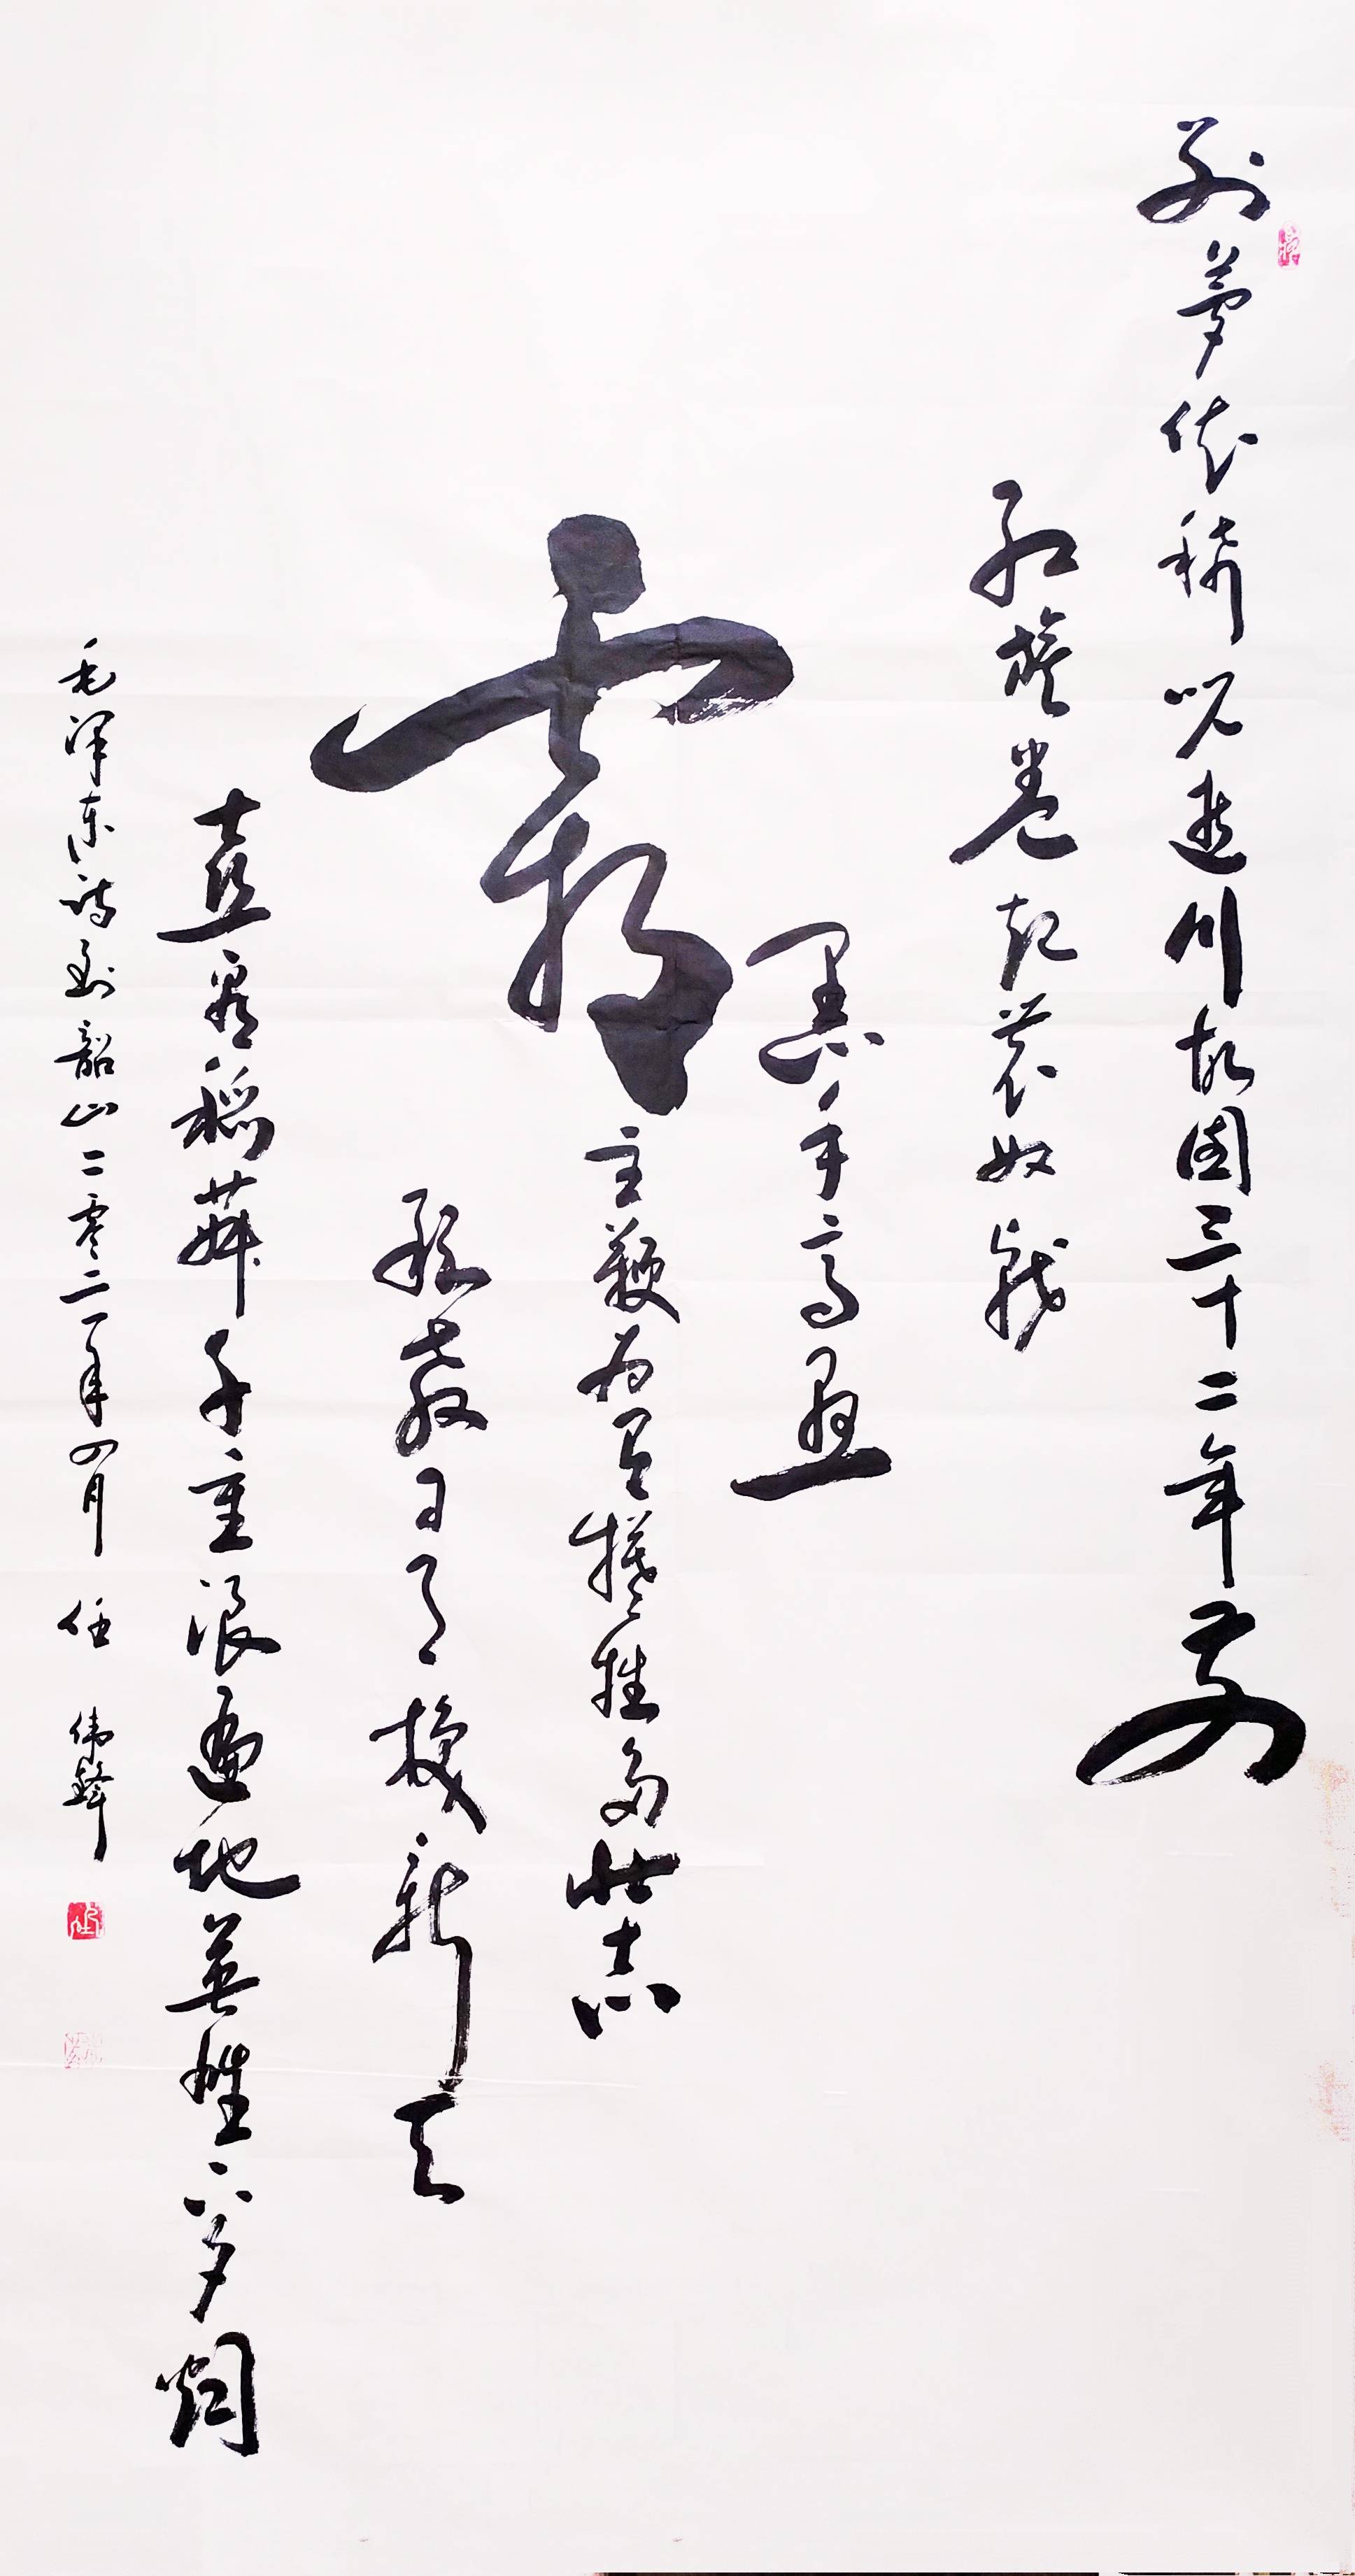 别梦依稀咒逝川故园三十二年前
红旗卷起农奴戟
黑手高悬
霸主鞭为有牺牲多壮志
敢教日月换新天
喜看稻菽千重浪遍地英雄下夕烟
毛泽东诗到韶山二零二一年四月 任伟锋